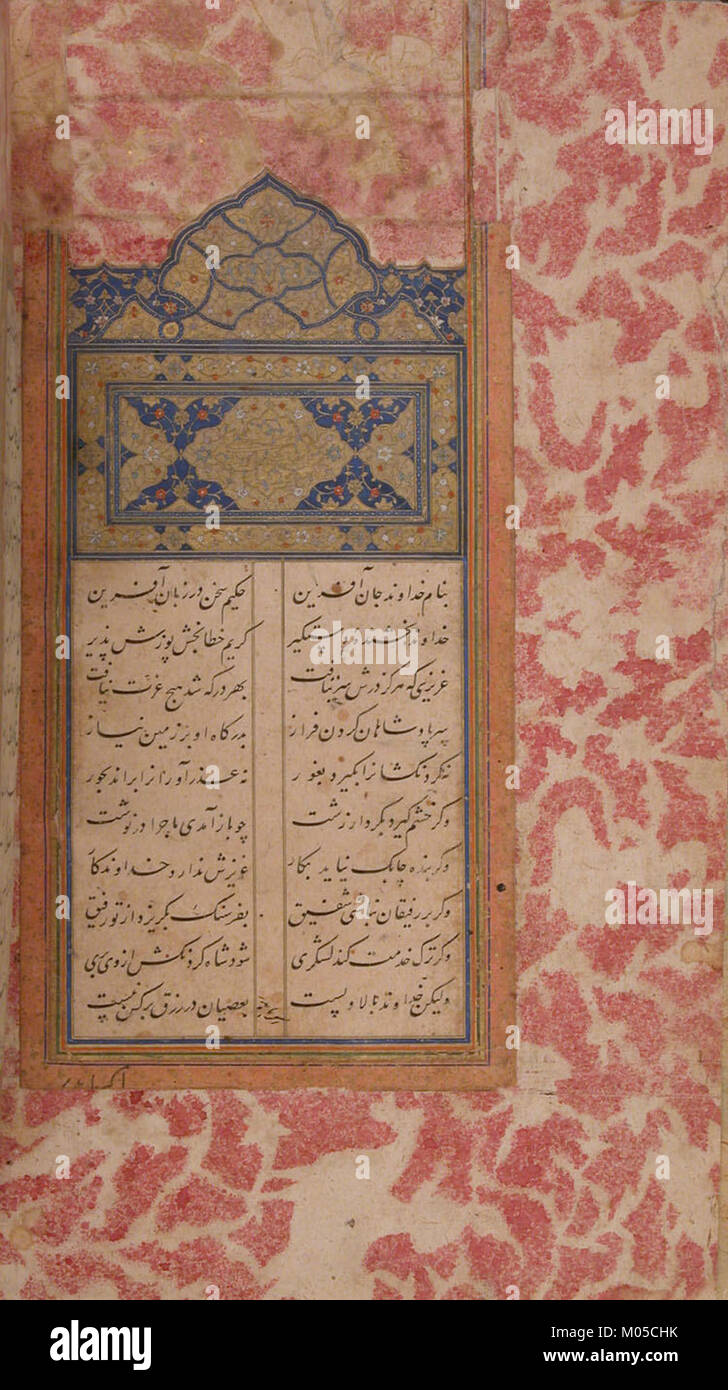 بنام خداوند جان آفرین حکیم سخن در زبان آفرین
خداوند بخشنده دستگیر کریم خطابخش پوزش پذیر
عزیزی که هر کز درش سر بتافت بهر در که شد هیچ عزت نیافت
سر پادشاهان کردن فراز بدرکاه او بر زمین نیاز
نه کردنکشانرا بکیرد بفور نه عذرآورانرا براند بجور
وکر خشم کیرد بکردار زشت چو باز آمدی ماجرا درنوشت
وکر بنده چابک نیاید بکار عزیزش ندارد خداوندکار
وکر بر رفیقان نباشی شفیق بفرسنک بکریزد از تو رفیق
وکر ترک خدمت کند لشکری شود شاه کردنکش از وی بری
ولیکن خداوند بالا و پست بعصیان در رزق بر کس نبست
alamy
alamy
alamy
alamy
Image ID: M05CHK
www.alamy.com